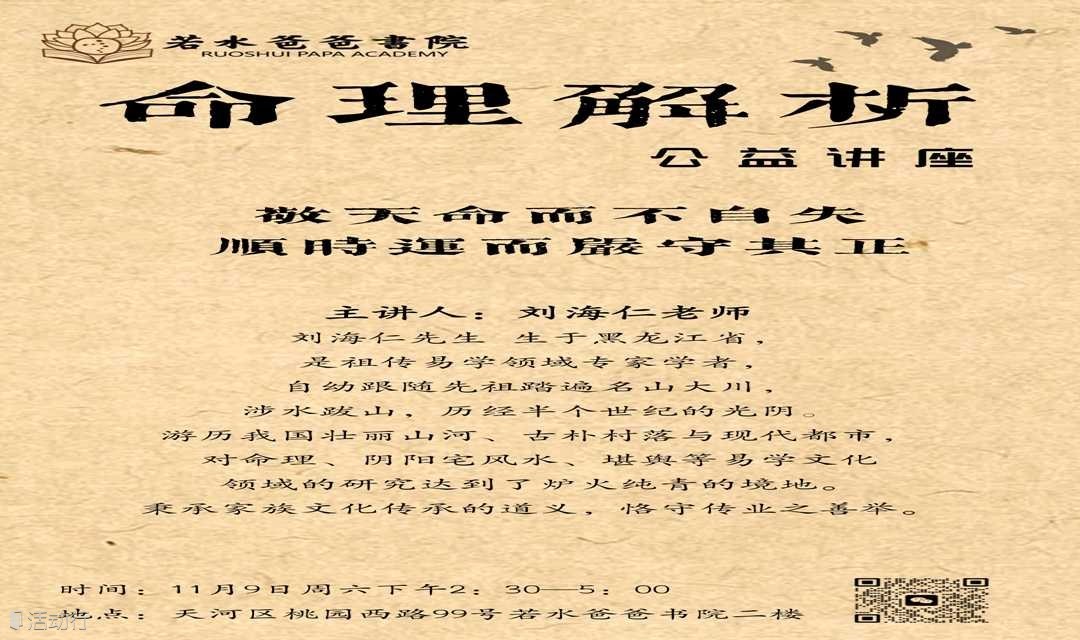 若水爸爸書院
RUOSHUI PAPA ACADEMY
命理解析
公益讲座
敬天命而不自失
順時運而嚴守其正
主讲人：刘海仁老师
刘海仁先生 生于黑龙江省，
是祖传易学领域专家学者，
自幼跟随先祖踏遍名山大川，
涉水跋山，历经半个世纪的光阴。
游历我国壮丽山河、古朴村落与现代都市，
对命理、阴阳宅风水、堪舆等易学文化
领域的研究达到了炉火纯青的境地。
秉承家族文化传承的道义，恪守传业之善举。
时间：11月9日周六下午2：30—5：00
地点：天河区桃园西路99号若水爸爸书院二楼
活动行